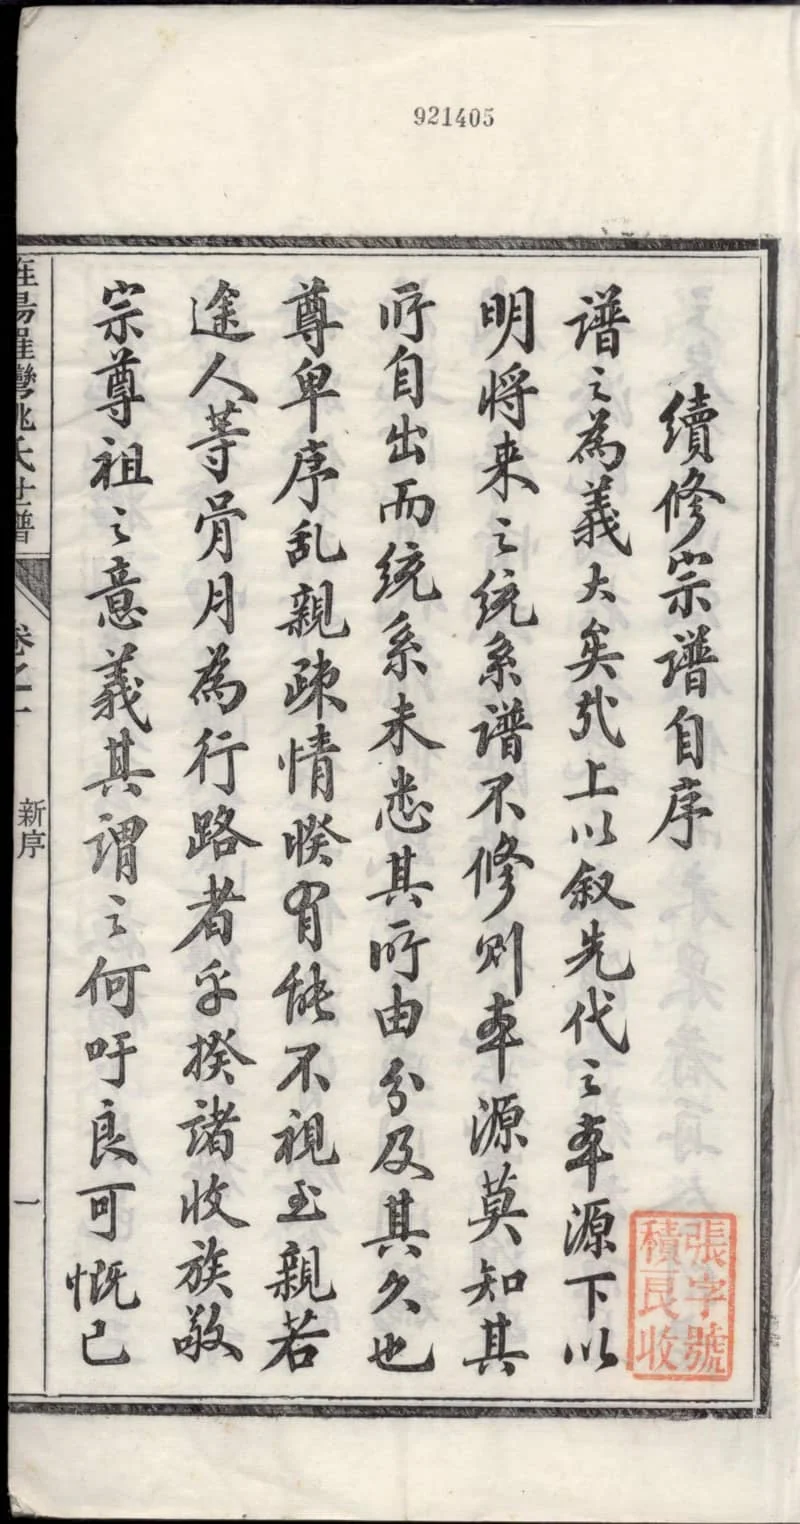 921405
續修宗谱自序
谱之為義大矣哉上以叙先代之本源下以
明将来之统系谱不修则本源莫知其
所自出而统系未悉其所由分及其久也
尊卑序乱親疎情暌有能不視至親若
途人等骨月為行路者乎揆諸收族敬
宗尊祖之意義其謂之何吁良可慨已
張字號
積良收
氏世譜
卷之一
新序
一